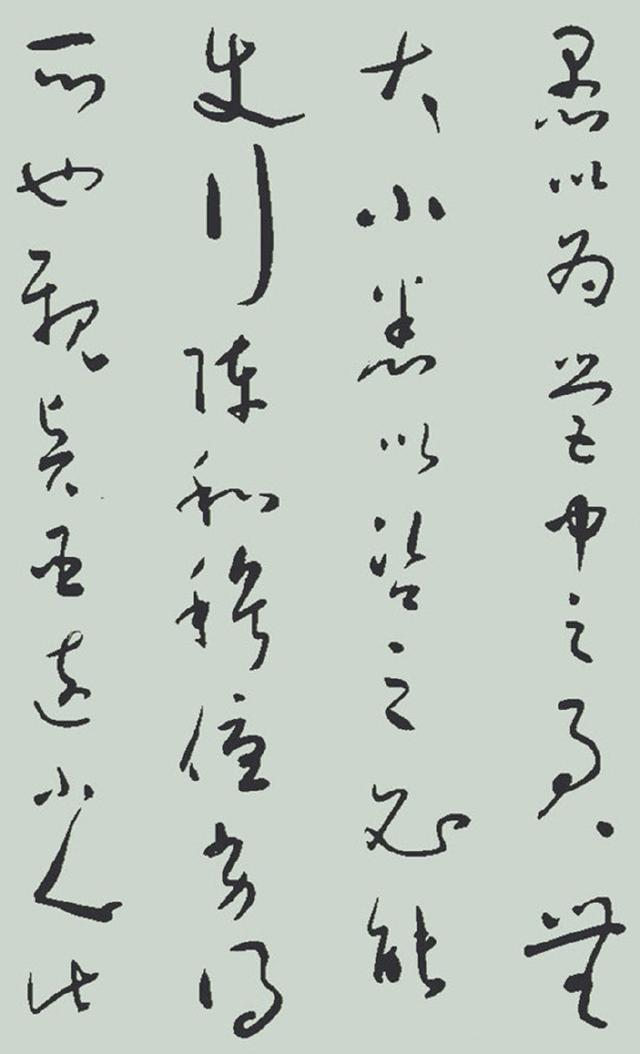 愚以為營中之事無
大小悉以咨之必能
使行陣和穆優劣得
所也親賢臣遠小人此